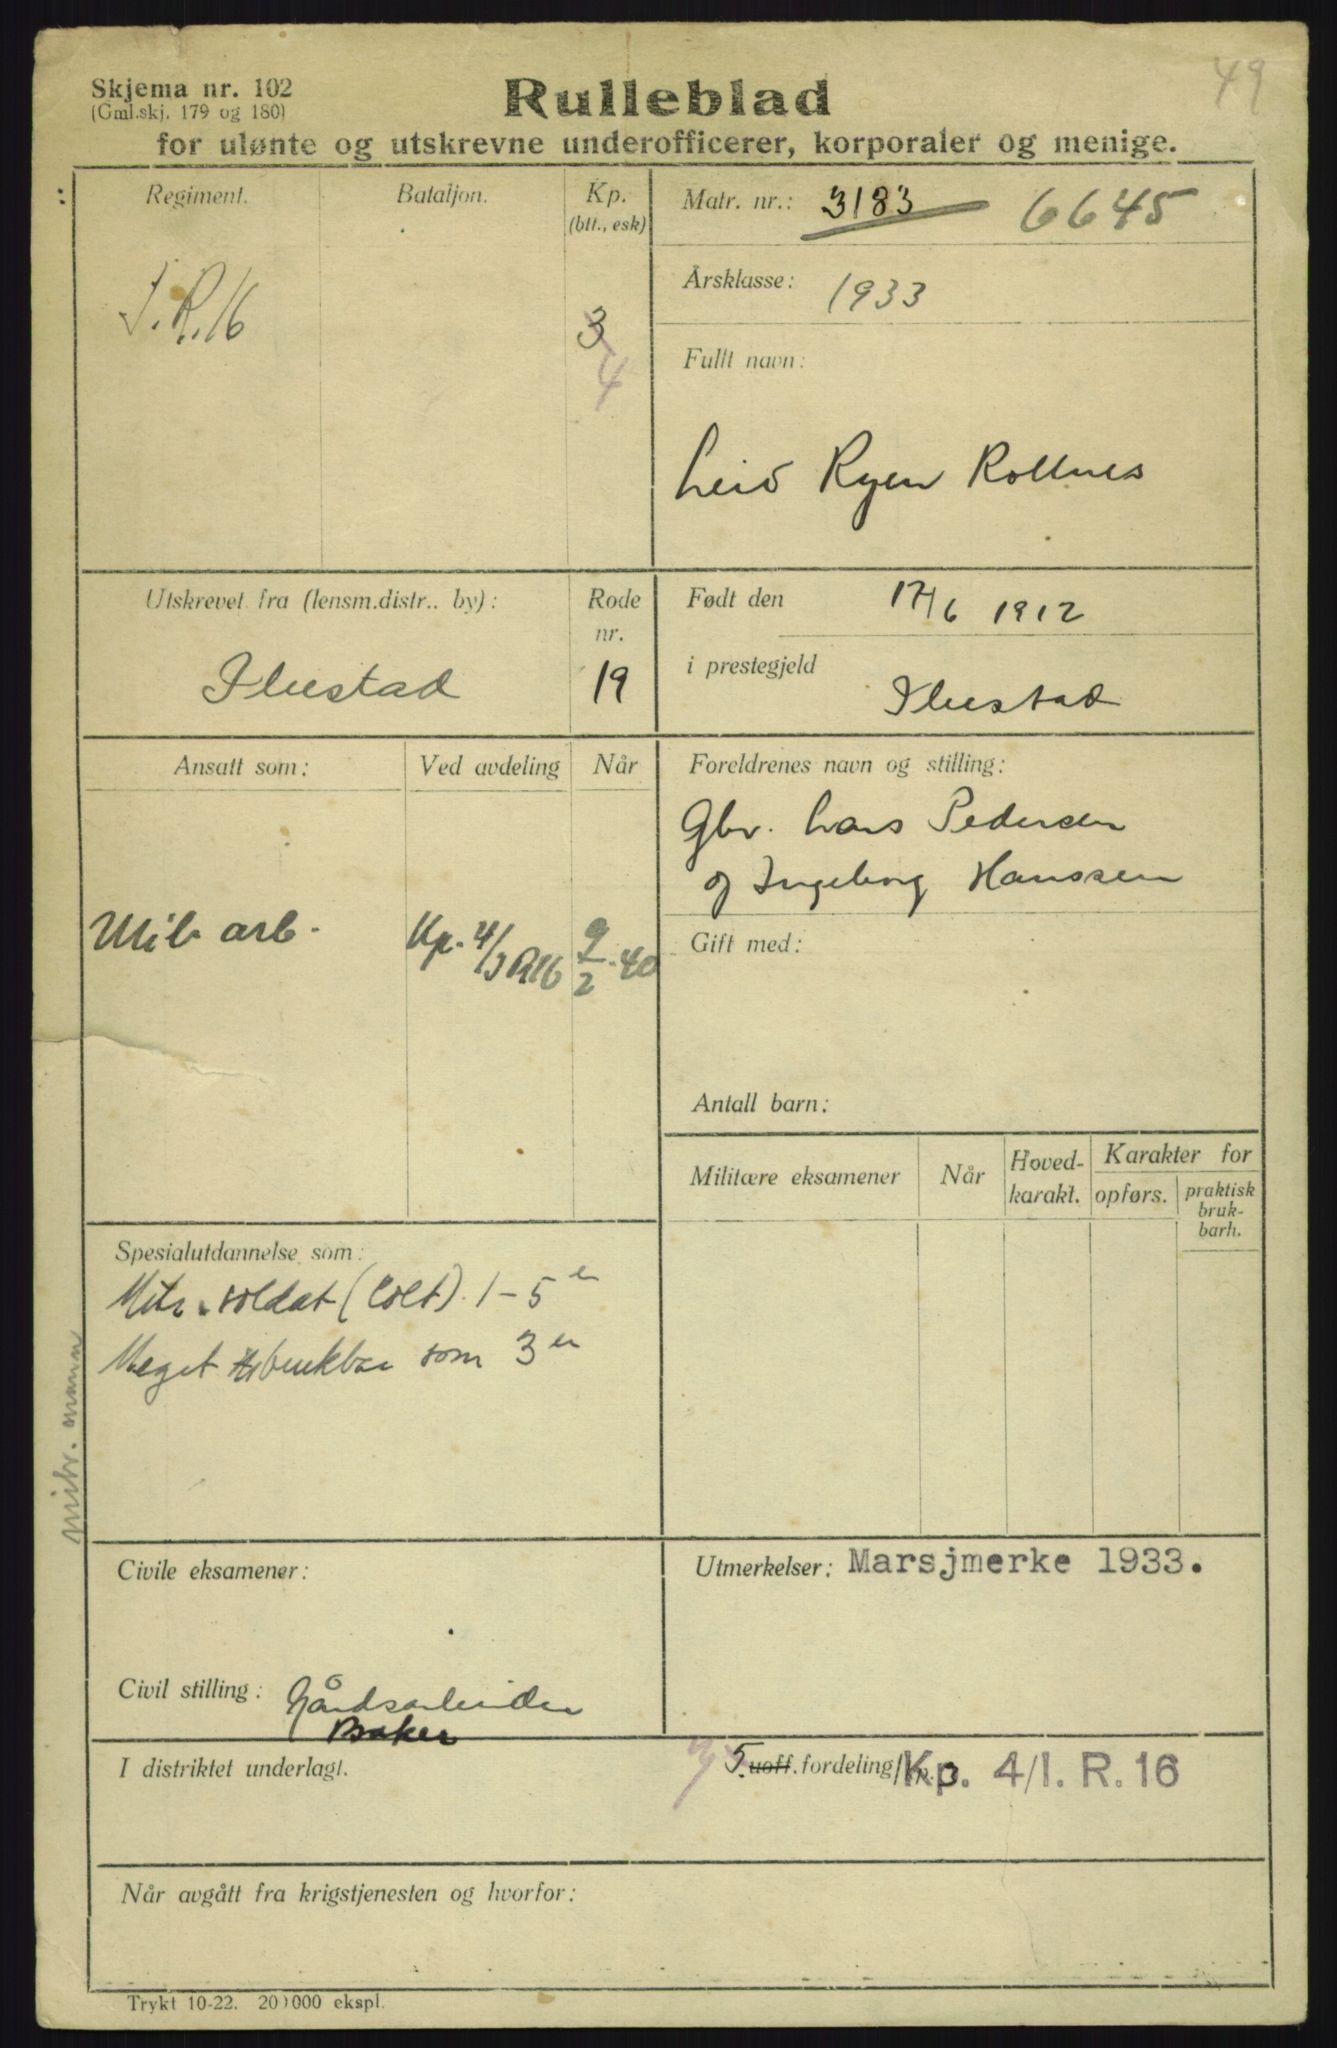 49
Skjema nr. 102
(Gml.skj. 179 og 180)
Rulleblad
for ulønte og utskrevne underofficerer, korporaler og menige.
Regiment.
Bataljon.
Kp.
(btt., esk)
I.R.16
3
4
Matr. nr.: 3183 6645
Årsklasse: 1933
Fullt navn:
Leiv Ryen Rollnes
Utskrevet fra (lensm.distr.. by):
Ibestad
Rode
nr.
19
Født den 17/6 1912
i prestegjeld
Ibestad
Ansatt som:
Ved avdeling
Når
Mib arb.
Kp. 4/I R16
9/2.40
Foreldrenes navn og stilling:
Gbr. Lars Pedersen
og Ingeborg Hanssen
Gift med:
Antall barn:
Militære eksamener
Når
Hoved-
karakt.
Karakter for
opførs.
praktisk
bruk-
barh.
Spesialutdannelse som:
Mitr. soldat (Colt). 1 – 5er
Meget brukbar som 3er
mitr. mann
Civile eksamener:
Civil stilling: Gårdsarbeider
Baker
Utmerkelser: Marsjmerke 1933.
I distriktet underlagt.
5. uoff. fordeling Kp. 4/I. R. 16
Når avgått fra krigstjenesten og hvorfor:
Trykt 10-22. 20 000 ekspl.